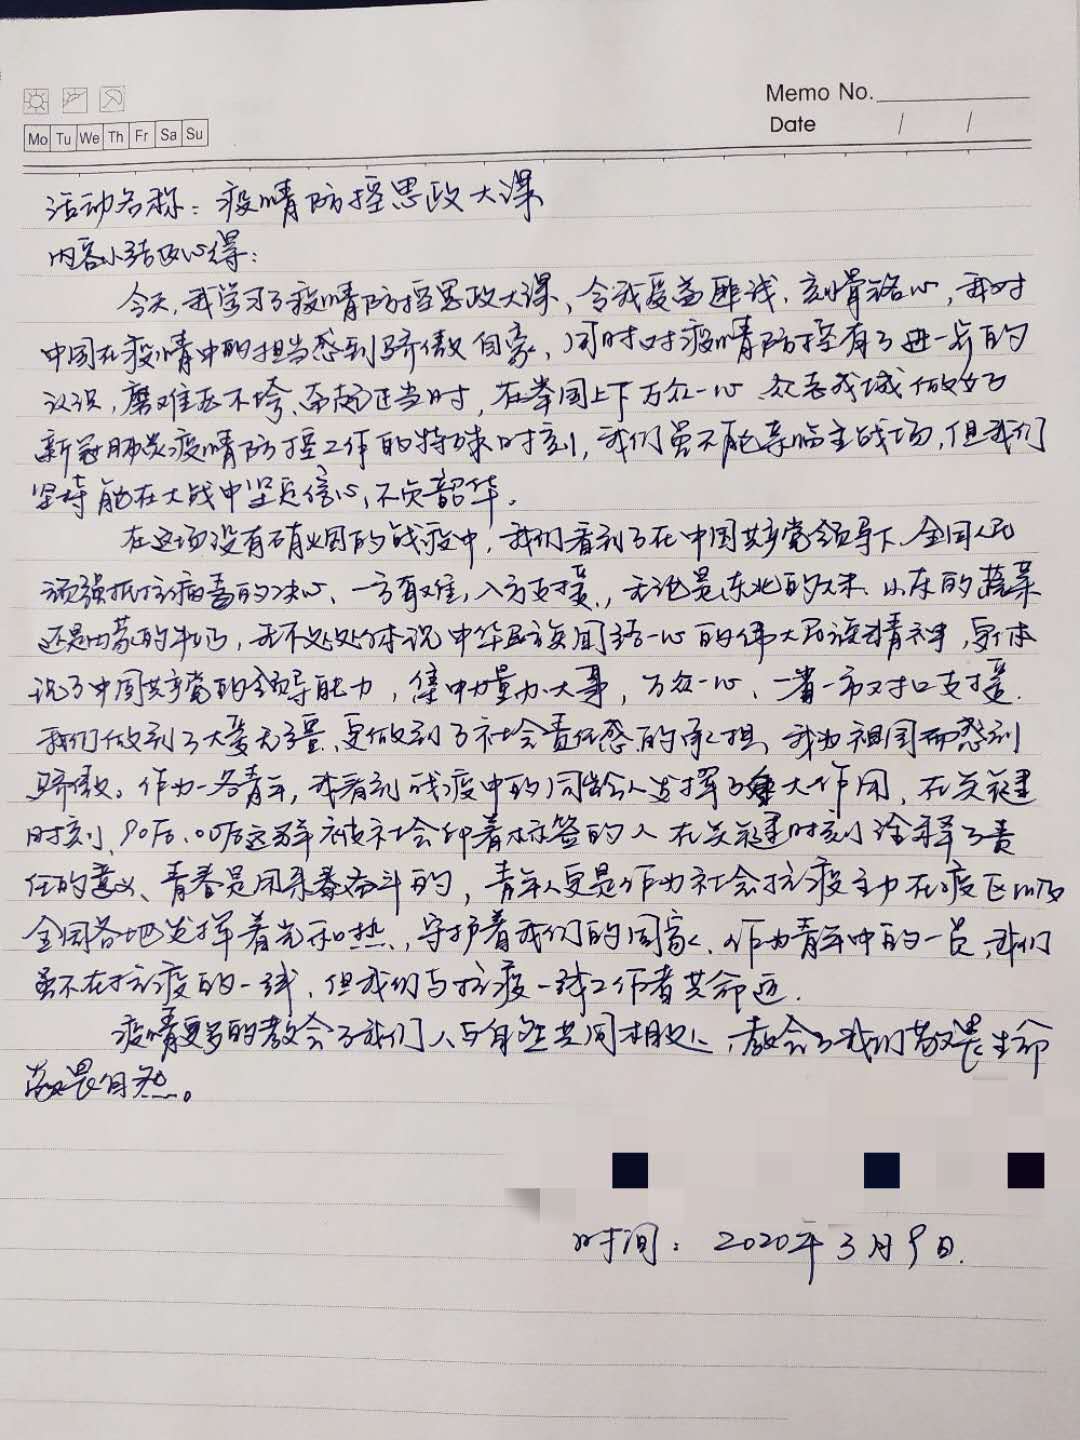 Memo No.
Mo Tu We Th Fr Sa Su
Date / /
活动名称：疫情防控思政大课
内容小结及心得：
今天，我学习了疫情防控思政大课，令我受益匪浅，刻骨铭心，我对
中国在疫情中的担当感到骄傲自豪，同时对疫情防控有了进一步的
认识，磨难压不垮、奋起正当时，在举国上下万众一心 众志成城做好
新冠肺炎疫情防控工作的特殊时刻，我们虽不能亲临主战场，但我们
坚持能在大战中坚定信心，不负韶华。
在这场没有硝烟的战疫中，我们看到了在中国共产党领导下，全国人民
顽强抵抗病毒的决心、一方有难，八方支援，无论是东北的大米、山东的蔬菜
还是内蒙的牛奶，无不处处体现中华民族团结一心的伟大民族精神，更体
现了中国共产党的领导能力，集中力量办大事，万众一心、一省一市对口支援，
我们做到了大爱无疆，更做到了社会责任感的承担，我为祖国而感到
骄傲。作为一名青年，我看到战疫中的同龄人发挥了大作用，在关键
时刻，90后、00后这群被社会印着标签的人在关键时刻诠释了责
任的意义、青春是用来奋斗的，青年人更是作为社会抗疫主力在疫区以及
全国各地发挥着光和热，守护着我们的国家，作为青年中的一员，我们
虽不在抗疫的一线，但我们与抗疫一线工作者共命运.
疫情更多的教会了我们人与自然共同相处，教会了我们敬畏生命
敬畏自然。
时间：2020年3月9日.